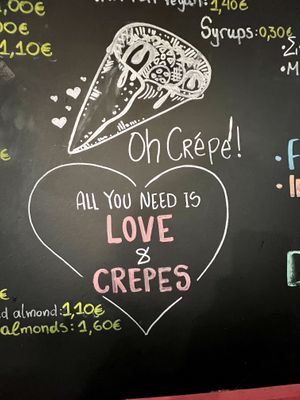 ,00€
00€
1,10€
1,40€
Syrups:0,30€
Oh Crépe!
ALL YOU NEED IS
LOVE
&
CREPES
almond:1,10€
almonds:1,60€